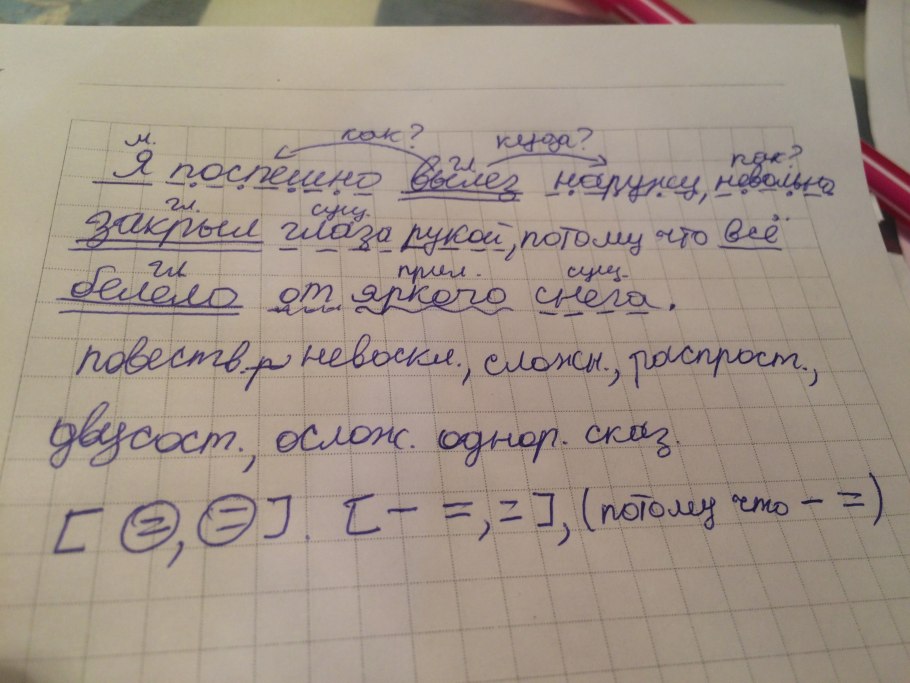 м. как? куда?
Я поспешно вылез наружу, невольно
гл. как?
закрыл глаза рукой, потому что всё
гл. сущ.
белело от яркого снега.
гл прил. сущ.
повеств., невоскл., сложн., распрост.,
двусост., ослож. однор. сказ.
[ =, = ]. [ – =, = ], (потому что – =)